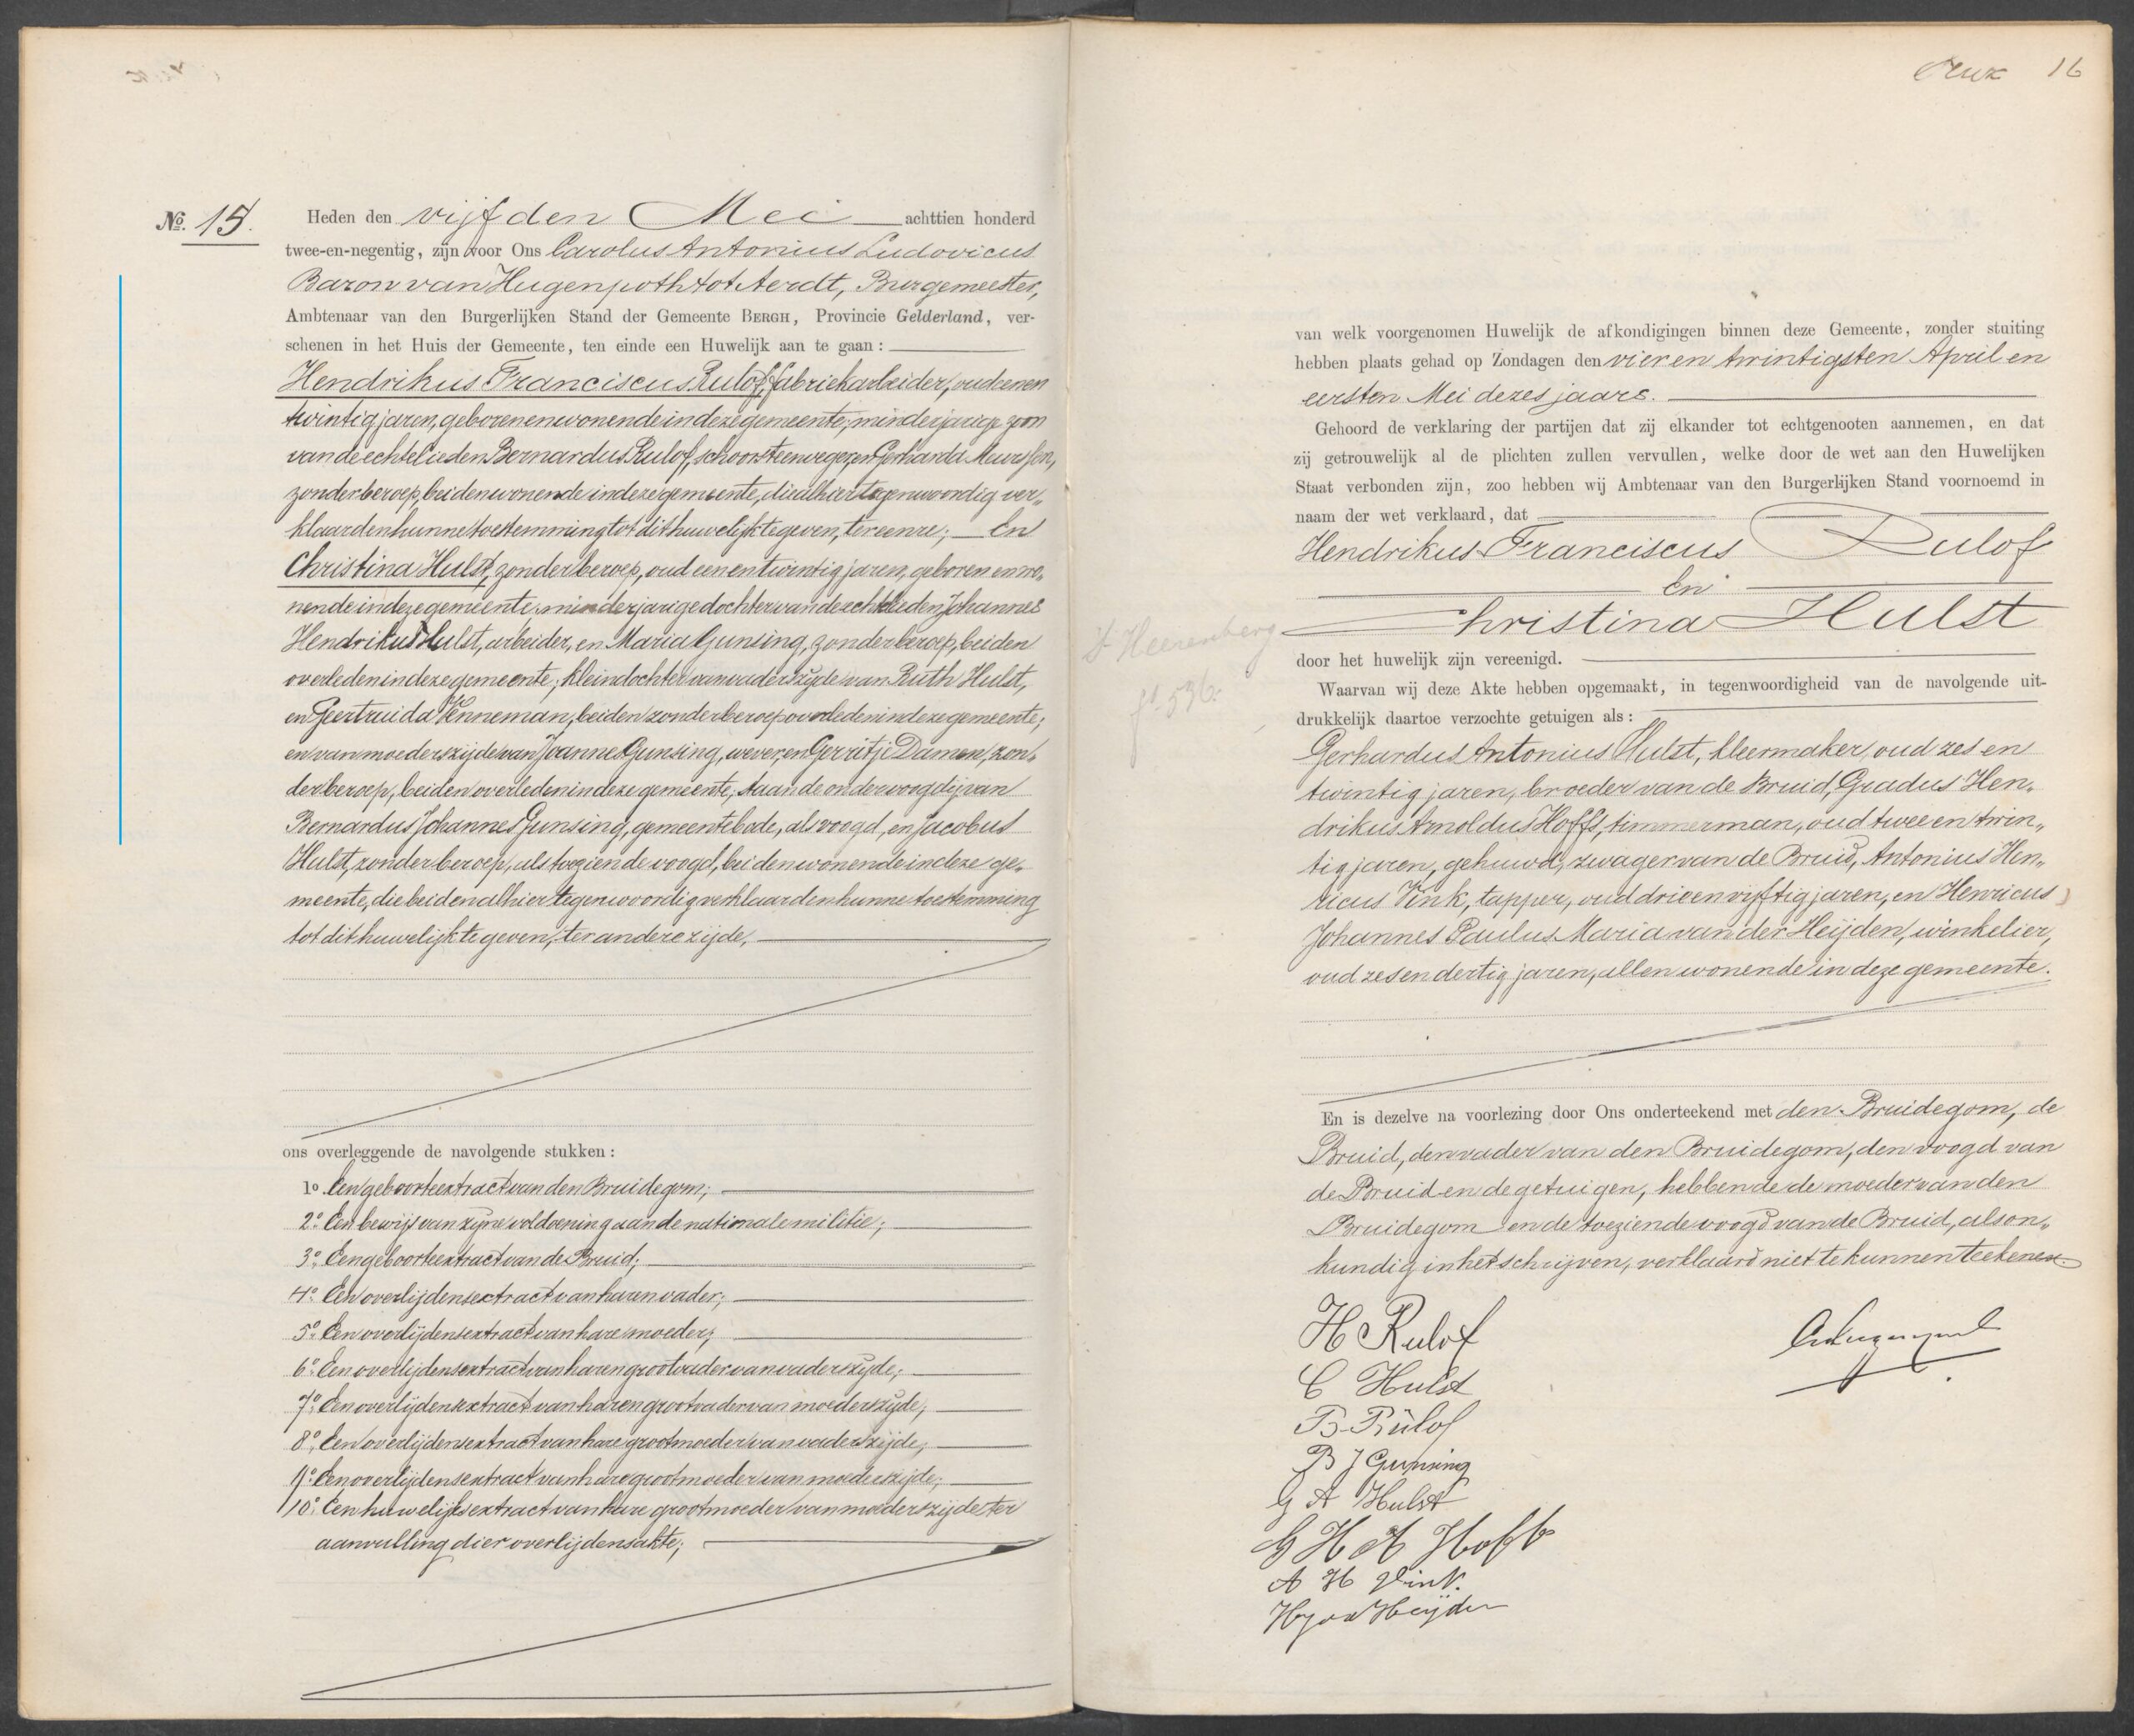 No. 15.
Heden den vijfden Mei achttien honderd
twee-en-negentig, zijn voor Ons Carolus Antonius Ludovicus
Baron van Hugenpoth tot Aerdt, Burgemeester,
Ambtenaar van den Burgerlijken Stand der Gemeente BERGH, Provincie Gelderland, ver-
schenen in het Huis der Gemeente, ten einde een Huwelijk aan te gaan:
Hendrikus Franciscus Rulof, fabriekarbeider, oud een en
twintig jaren, geboren en wonende in deze gemeente, minderjarige zoon
van de echtelieden Bernardus Rulof, schoorsteenveger, en Gerharda Meurssen,
zonder beroep, beiden wonende in deze gemeente, die alhier tegenwoordig ver„
klaarden hunne toestemming tot dit huwelijk te geven, ter eenre; en
Christina Hulst, zonder beroep, oud een en twintig jaren, geboren en wo„
nende in deze gemeente, minderjarige dochter van de echtelieden Johannes
Hendrikus Hulst, arbeider, en Maria Gunsing, zonder beroep, beiden
overleden in deze gemeente; kleindochter van vaderszijde van Ruth Hulst,
en Geertruida Venneman, beiden zonder beroep overleden in deze gemeente;
en van moederszijde van Joannes Gunsing, wever, en Gerritje Damen, zon„
der beroep, beiden overleden in deze gemeente, staande onder voogdij van
Bernardus Johannes Gunsing, gemeentebode, als voogd, en Jacobus
Hulst, zonder beroep, als toeziende voogd, beiden wonende in deze ge„
meente, die beiden alhier tegenwoordig verklaarden hunne toestemming
tot dit huwelijk te geven, ter andere zijde,
ons overleggende de navolgende stukken:
1o. Een geboorteextract van den Bruidegom;
2o. Een bewijs van zijne voldoening aan de nationale militie;
3o. Een geboorteextract van de Bruid;
4o. Een overlijdensextract van haren vader;
5o. Een overlijdensextract van hare moeder;
6o. Een overlijdensextract van haren grootvader van vaderszijde;
7o. Een overlijdensextract van haren grootvader van moederszijde;
8o. Een overlijdensextract van hare grootmoeder van vaderszijde;
9o. Een overlijdensextract van hare grootmoeder van moederszijde;
10o. Een huwelijksextract van hare grootmoeder van moederszijde ter
aanvulling dier overlijdensakte;
16
van welk voorgenomen Huwelijk de afkondigingen binnen deze Gemeente, zonder stuiting
hebben plaats gehad op Zondagen den vier en twintigsten April en
eersten Mei dezes jaars.
Gehoord de verklaring der partijen dat zij elkander tot echtgenooten aannemen, en dat
zij getrouwelijk al de plichten zullen vervullen, welke door de wet aan den Huwelijken
Staat verbonden zijn, zoo hebben wij Ambtenaar van den Burgerlijken Stand voornoemd in
naam der wet verklaard, dat
Hendrikus Franciscus Rulof
en
Christina Hulst
door het huwelijk zijn vereenigd.
's Heerenberg
fo 536.
Waarvan wij deze Akte hebben opgemaakt, in tegenwoordigheid van de navolgende uit-
drukkelijk daartoe verzochte getuigen als:
Gerhardus Antonius Hulst, kleermaker, oud zes en
twintig jaren, broeder van de Bruid, Gradus Hen„
drikus Arnoldus Hoffs, timmerman, oud twee en twin„
tig jaren, gehuwd, zwager van de Bruid, Antonius Hen„
ricus Vink, tapper, oud drie en vijftig jaren, en Henricus
Johannes Paulus Maria van der Heijden, winkelier,
oud zes en dertig jaren, allen wonende in deze gemeente.
En is dezelve na voorlezing door Ons onderteekend met den Bruidegom, de
Bruid, den vader van den Bruidegom, den voogd van
de Bruid en de getuigen, hebbende de moeder van den
Bruidegom en de toeziende voogd van de Bruid, als on„
kundig in het schrijven, verklaard niet te kunnen teekenen.
H Rulof
C Hulst
B. Rülof
B J Gunsing
G A Hulst
G H A Hoffs
A H Vink.